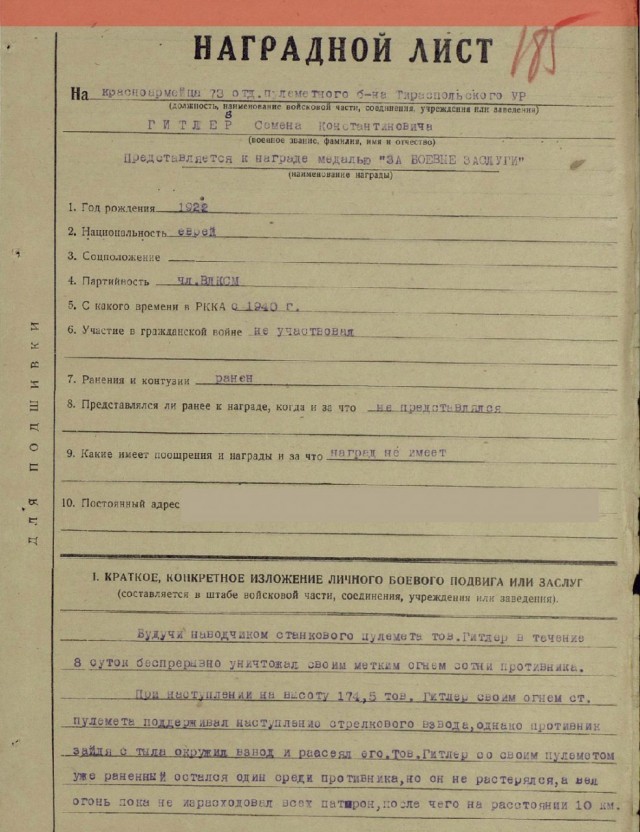 185
НАГРАДНОЙ ЛИСТ
На красноармейца 73 отд.пулеметного б-на Тираспольского УР
(должность, наименование войсковой части, соединения, учреждения или заведения)
ГИТЛЕР Семена Константиновича
(военное звание, фамилия, имя и отчество)
Представляется к награде медалью "ЗА БОЕВЫЕ ЗАСЛУГИ"
(наименование награды)
1. Год рождения 1922
2. Национальность еврей
3. Соцположение
4. Партийность чл.ВЛКСМ
5. С какого времени в РККА с 1940 г.
6. Участие в гражданской войне не участвовал
7. Ранения и контузии ранен
8. Представлялся ли ранее к награде, когда и за что не представлялся
9. Какие имеет поощрения и награды и за что наград не имеет
10. Постоянный адрес
ДЛЯ ПОДШИВКИ
I. КРАТКОЕ, КОНКРЕТНОЕ ИЗЛОЖЕНИЕ ЛИЧНОГО БОЕВОГО ПОДВИГА ИЛИ ЗАСЛУГ
(составляется в штабе войсковой части, соединения, учреждения или заведения).
Будучи наводчиком станкового пулемета тов.Гитлер в течение
8 суток беспреравно уничтожал своим метким огнем сотни противника.
При наступлении на высоту 174,5 тов. Гитлер своим огнем ст.
пулемета поддерживал наступление стрелкового взвода,однако противник
зайдя с тыла окружил взвод и рассеял его.Тов.Гитлер со своим пулеметом
уже раненный остался один среди противника,но он не растерялся,а вел
огонь пока не израсходовал всех патирон,после чего на расстоянии 10 км.